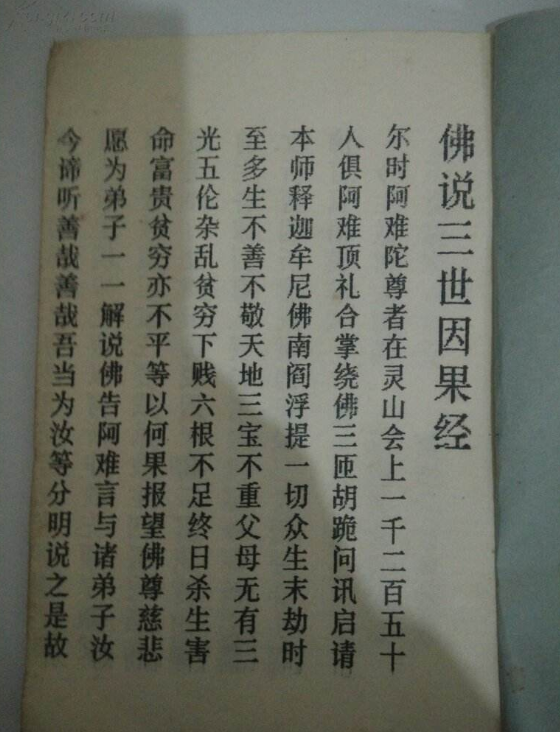 佛说三世因果经
尔时阿难陀尊者在灵山会上一千二百五十
人俱阿难顶礼合掌绕佛三匝胡跪问讯启请
本师释迦牟尼佛南阎浮提一切众生末劫时
至多生不善不敬天地三宝不重父母无有三
光五伦杂乱贫穷下贱六根不足终日杀生害
命富贵贫穷亦不平等以何果报望佛尊慈悲
愿为弟子一一解说佛告阿难言与诸弟子汝
今谛听善哉善哉吾当为汝等分明说之是故